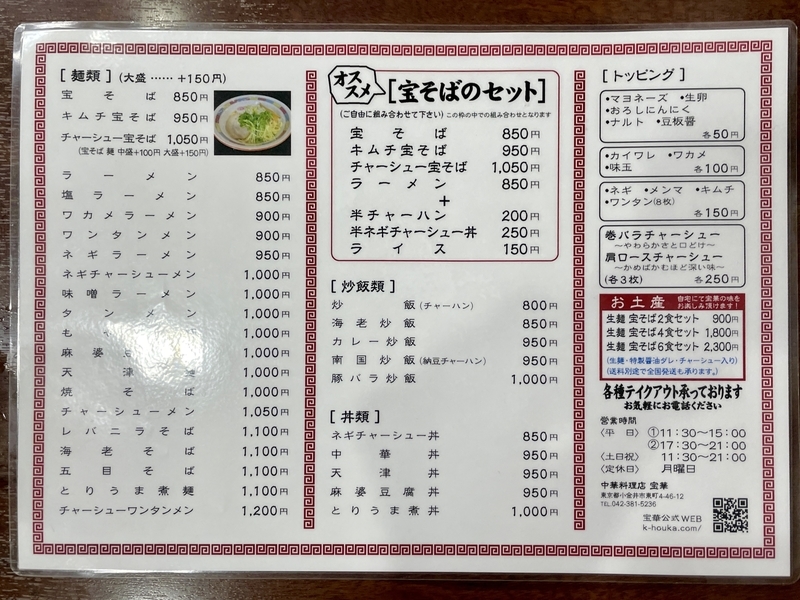 [ 麺類 ] (大盛 …… +150円)
宝そば 850円
キムチ宝そば 950円
チャーシュー宝そば 1,050円
(宝そば 麺 中盛+100円 大盛+150円)
ラーメン 850円
塩ラーメン 850円
ワカメラーメン 900円
ワンタンメン 900円
ネギラーメン 950円
ネギチャーシューメン 1,000円
味噌ラーメン 1,000円
タンメン 1,000円
も 1,000円
麻婆 1,000円
天津麺 1,000円
焼そば 1,000円
チャーシューメン 1,050円
レバニラそば 1,100円
海老そば 1,100円
五目そば 1,100円
とりうま煮麺 1,100円
チャーシューワンタンメン 1,200円
オススメ
[宝そばのセット]
(ご自由に組み合わせて下さい) この枠の中での組み合わせとなります
宝そば 850円
キムチ宝そば 950円
チャーシュー宝そば 1,050円
ラーメン 850円
+
半チャーハン 200円
半ネギチャーシュー丼 250円
ライス 150円
[ 炒飯類 ]
炒飯(チャーハン) 800円
海老炒飯 850円
カレー炒飯 950円
南国炒飯(納豆チャーハン) 950円
豚バラ炒飯 1,000円
[ 丼類 ]
ネギチャーシュー丼 850円
中華丼 950円
天津丼 950円
麻婆豆腐丼 950円
とりうま煮丼 1,000円
[ トッピング ]
•マヨネーズ •生卵
•おろしにんにく
•ナルト •豆板醤
各50円
•カイワレ •ワカメ
•味玉 各100円
•ネギ •メンマ •キムチ
•ワンタン(8枚)
各150円
巻バラチャーシュー
〜やわらかさと口どけ〜
肩ロースチャーシュー
〜かめばかむほど深い味〜
(各3枚) 各250円
お土産 自宅にて宝華の味をお楽しみ頂けます!
生麺 宝そば2食セット 900円
生麺 宝そば4食セット 1,800円
生麺 宝そば6食セット 2,300円
(生麺・特製醤油ダレ・チャーシュー入り)
(送料別途で全国発送も承ります。)
各種テイクアウト承っております
お気軽にお電話ください
営業時間
〈平 日〉 ①11:30〜15:00
②17:30〜21:00
〈土日祝〉 11:30〜21:00
〈定休日〉 月曜日
中華料理店 宝華
東京都小金井市東町4-46-12
TEL.042-381-5236
宝華公式WEB
k-houka.com/